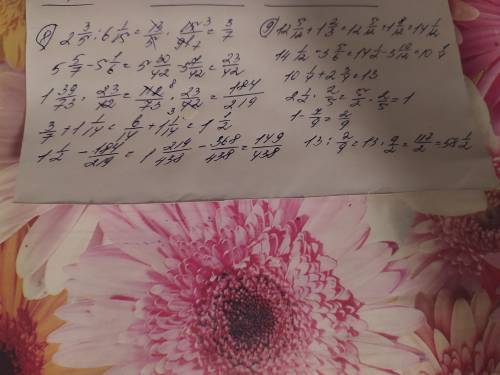 8) 2 3/5 : 6 1/15 = 13/5 · 15/91 = 3/7
5 5/7 - 5 1/6 = 5 30/42 - 5 7/42 = 23/42
1 39/73 · 23/42 = 112/73 · 23/42 = 184/219
3/7 + 1 1/14 = 6/14 + 1 1/14 = 1 1/2
1 1/2 - 184/219 = 1 219/438 - 368/438 = 149/438
9) 12 5/12 + 1 2/3 = 12 5/12 + 1 8/12 = 14 1/12
14 1/12 - 3 5/6 = 14 1/12 - 3 10/12 = 10 1/4
10 1/4 + 2 3/4 = 13
2 1/2 · 2/5 = 5/2 · 2/5 = 1
1 - 7/9 = 2/9
13 : 2/9 = 13 · 9/2 = 117/2 = 58 1/2